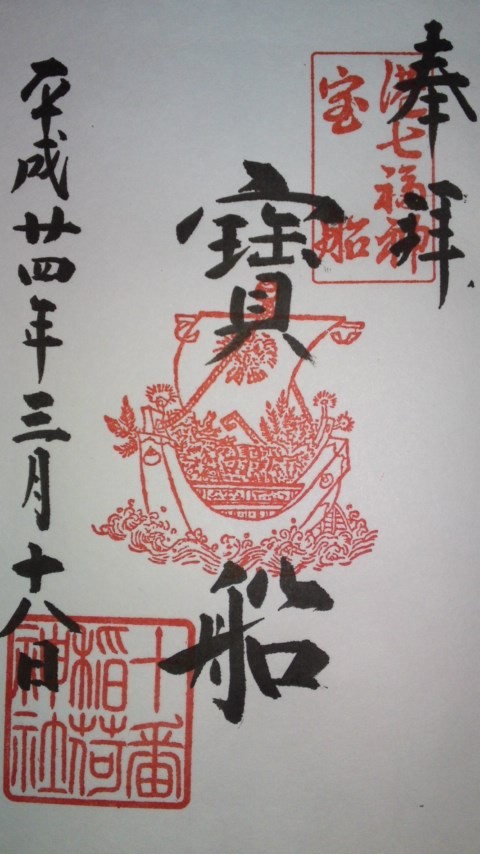 奉拝
港七福神
宝船
寶船
平成廿四年三月十八日
十番
稲荷
神社